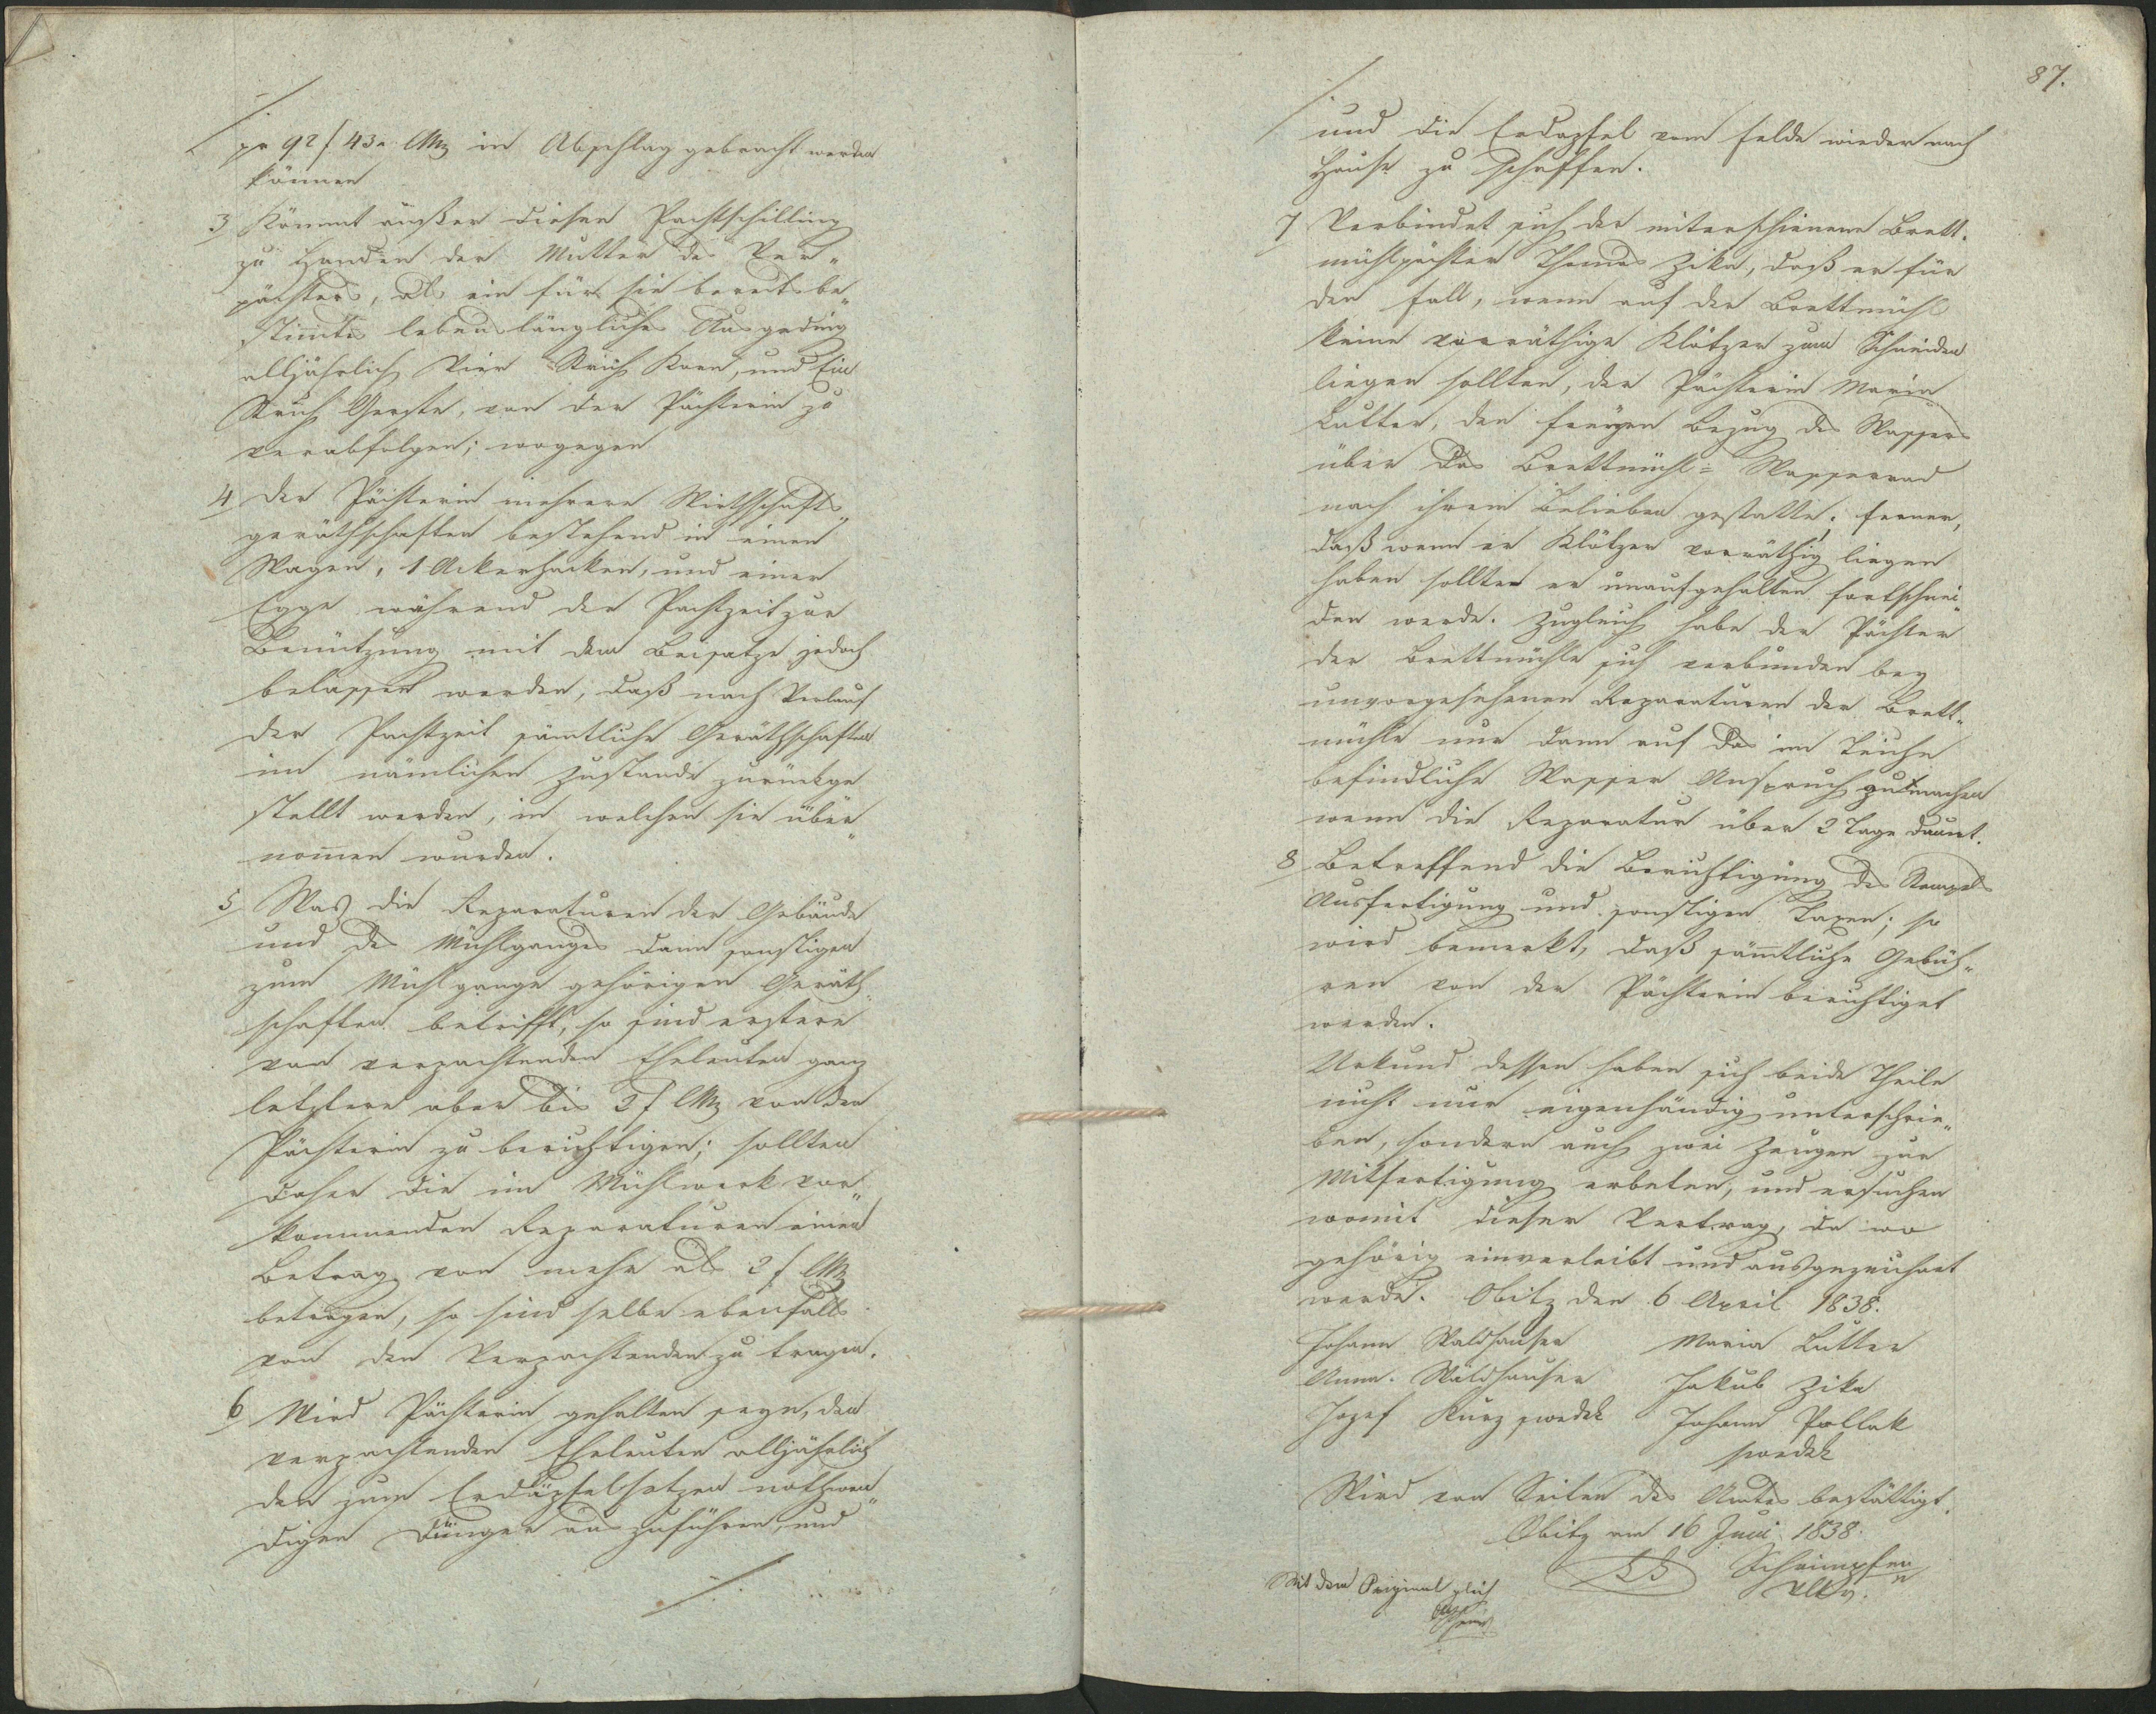 pr 92 f 43 x CMz in Abschlag gebracht werden
können
3 Kömmt außer diesen Pachtschilling
zu Handen der Mutter des Ver„
pächters, als ein für sie bereits be„
stimtes lebenslängliches Ausgeding
alljährlich Vier Strich Korn, und Ein
Strich Gerste, von der Pächterin zu
verabfolgen; wogegen
4 Der Pächterin mehrere Wirthschafts„
geräthschaften bestehend in einen
Wagen, 1 Ackerhacken, und einer
Egge während der Pachtzeit zur
Benützung mit dem Beisatze jedoch
belassen werden, daß nach Verlauf
der Pachtzeit sämtliche Geräthschaften
im nämlichen Zustande zurückge
stellt werden, in welchen sie über„
nomen wurden.
5 Was die Reparaturen der Gebäude
und des Mühlganges dann sonstigen
zum Mühlgange gehörigen Geräth„
schaften betrifft, so sind erstere
von verpachtenden Eheleuten ganz
letztere aber bis 2 f CMz von der
Pächterin zu berichtigen; sollten
daher die im Mühlwerk vor„
kommenden Reparaturen einen
Betrag von mehr als 2 f CMz
betragen, so sind selbe ebenfalls
von den Verpachtenden zu tragen.
6 Wird Pächterin gehalten seyn, den
verpachtenden Eheleuten alljährlich
den zum Erdäpfelsetzen nothwen„
digen Dünger auszuführen, und
87.
und die Erdapfel vom Felde wieder nach
Hause zu schaffen.
7 Verbindet sich der miterschienene Brett„
mühlpächter Thomas Zika, daß er für
den Fall, wenn auf der Brettmühl
keine vorräthige Klötzer zum Schneiden
liegen sollten, der Pächterin Maria
Lutter, den freyen Bezug des Wassers
über das Brettmühl= Wasserrad
nach ihrem Belieben gestatte; ferner,
daß wenn er Klötzer vorräthig liegen
haben sollte er unaufgehalten fortschnei„
den werde. Zugleich habe der Pächter
der Brettmühle sich verbunden bey
unvorgesehenen Reparaturen der Brett„
mühle nur dann auf das im Teiche
befindliche Wasser Anspruch zu machen
wenn die Reparatur über 2 Tage dauert.
8 Betreffend die Berichtigung des Stempels
Ausfertigung und sonstigen Taxen; so
wird bemerkt, daß sämtliche Gebüh„
ren von der Pächterin berichtiget
werden.
Urkund dessen haben sich beide Theile
nicht nur eigenhändig unterschrie„
ben, sondern auch zwei Zeugen zur
Mitfertigung erbeten, und ersuchen
womit dieser Vertrag, da wo
gehörig einverleibt und ausgezeichnet
werde. Obitz den 6 April 1838.
Johann Waldhauser Maria Lutter
Anna Waldhauser Jakub Zika
Jozef Kurz swedek Johann Pollak
swedek
Wird von Seiten des Amtes bestättigt.
Obitz am 16 Juni 1838.
Schrimpfen
Mit dem Original gleich